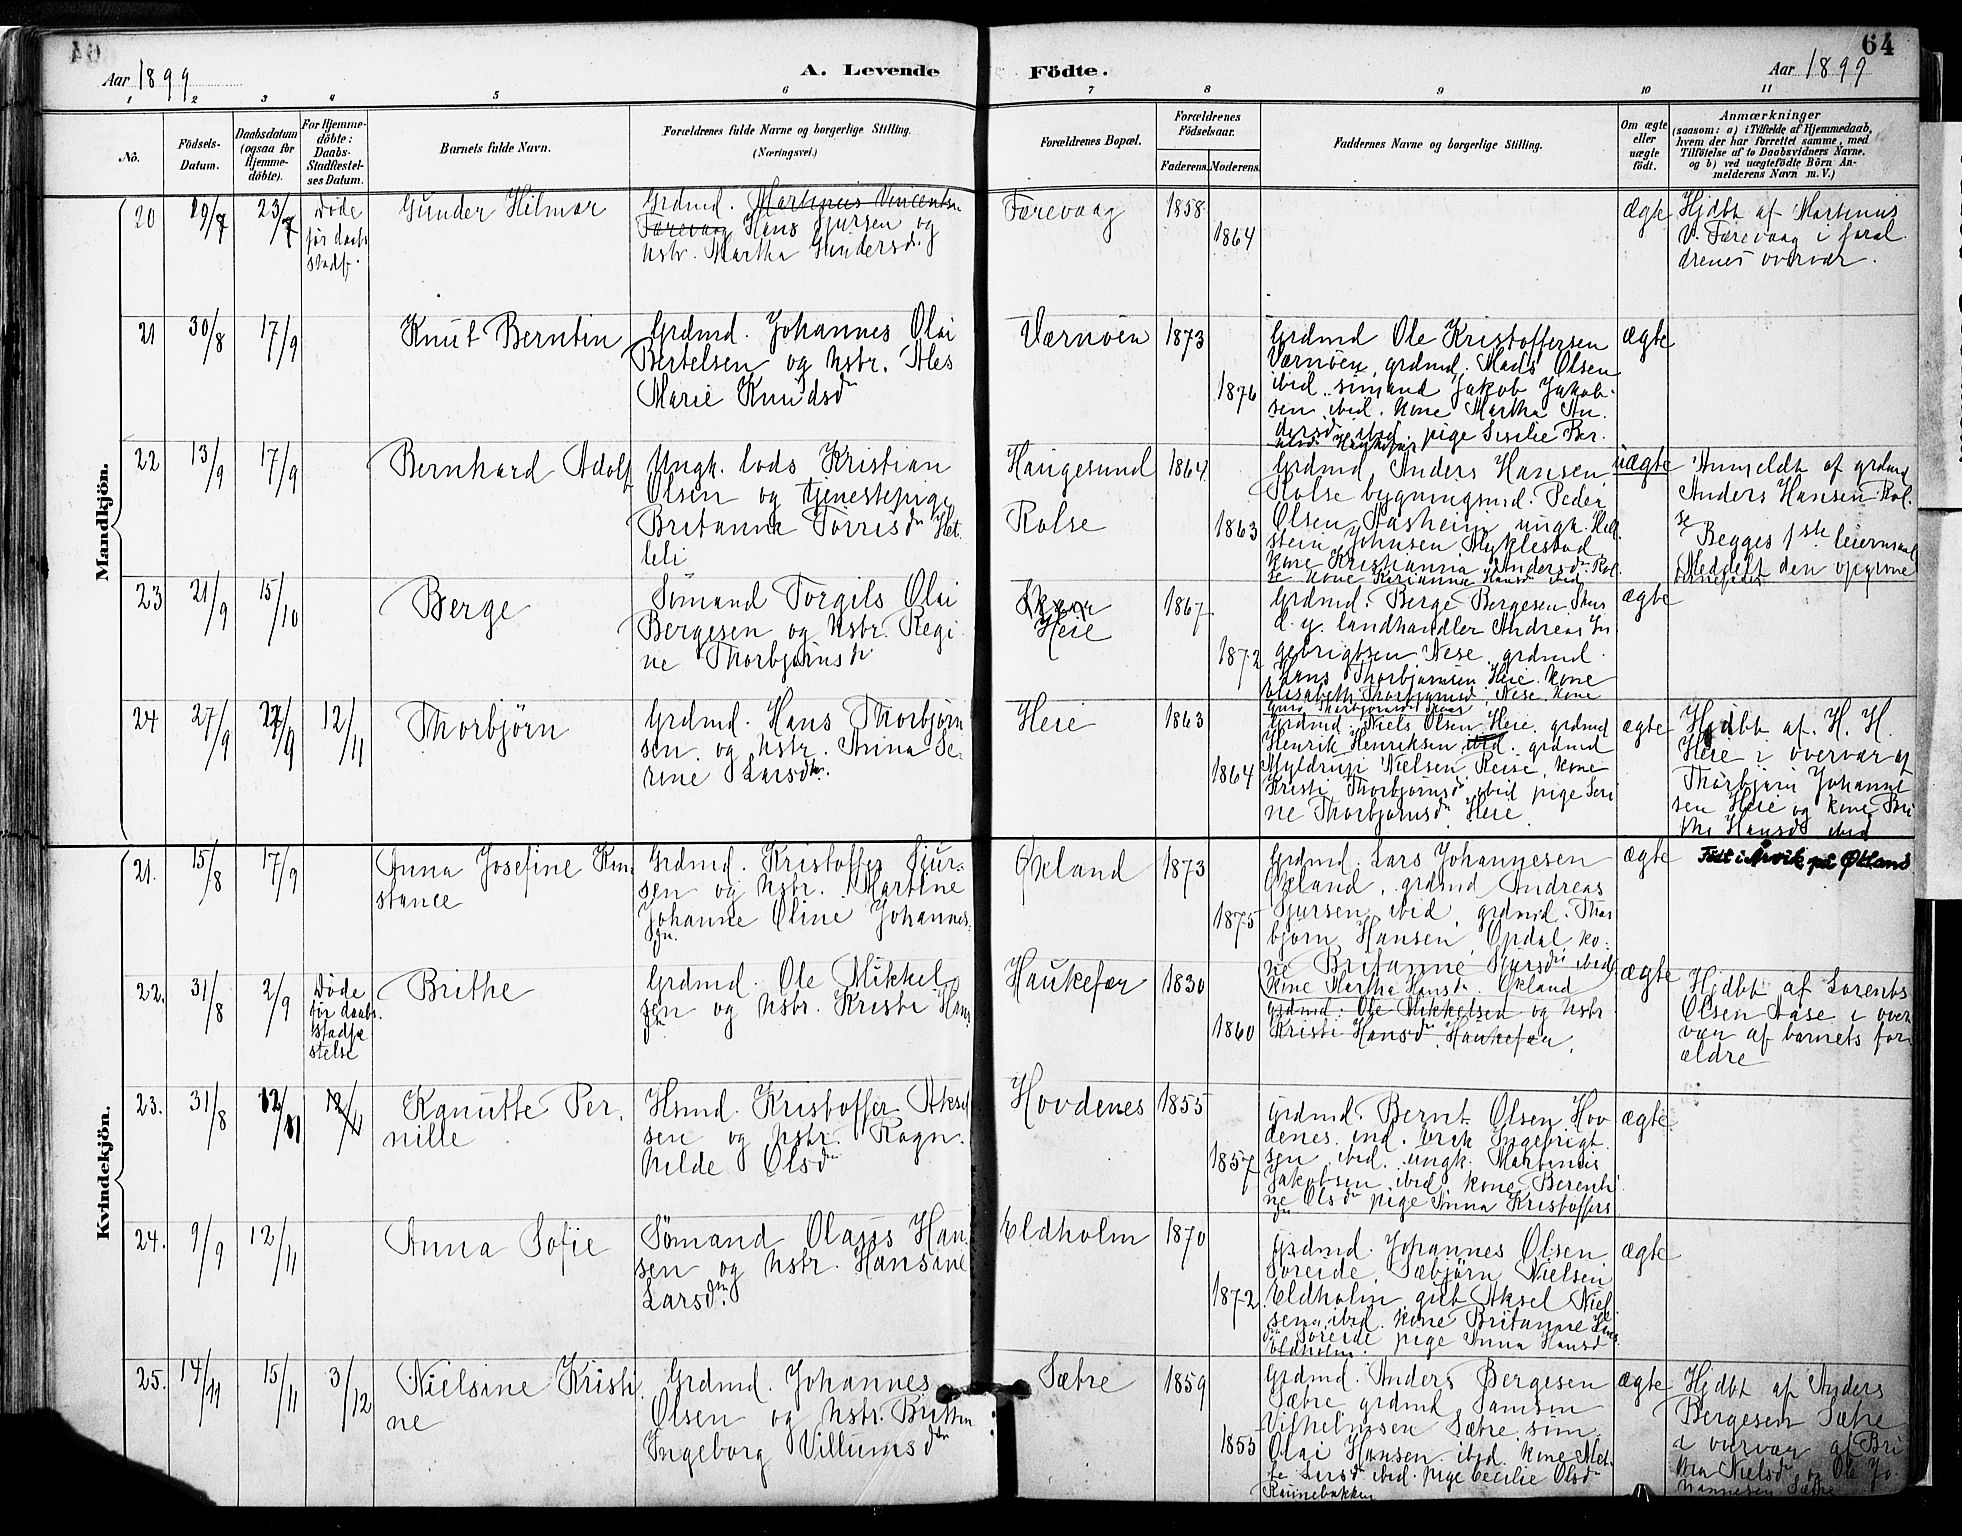 64
Aar 1899
A. Levende
Födte.
Aar 1899
1 2 3 4 5 6 7 8 9 10 11
No.
Födsels-
Datum.
Daabsdatum
(ogsaa för
Hjemme-
döbte).
For Hjemme-
döbte:
Daabs-
Stadfæstel-
ses Datum.
Barnets fulde Navn.
Forældrenes fulde Navne og borgerlige Stilling.
(Næringsvei.)
Forældrenes Bopæl.
Forældrenes
Födselsaar.
Faderens.
Moderens.
Faddernes Navne og borgerlige Stilling.
Om ægte
eller
uægte
födt.
Anmærkninger
(saasom: a) i Tilfælde af Hjemmedaab,
hvem der har forrettet samme, med
Tilföielse af to Daabsvidners Navne.
og b) ved uægtefödte Börn An-
melderens Navn m. V.)
Mandkjön.
20
19/7
23/7
Döde
før daabs
stadf.
Gunder Hilmar
Grdmd. Martinus Vincentsen
Førevaag Hans Sjursen og
hstr. Martha Gundersdr
Førevaag
1858
1864
ægte
Hjdbt af Martinus
V. Førevaag i foræl
drenes overvær.
21
30/8
17/9
Knut Berntin
Grdmd. Johannes Olai
Bertelsen og hstr. Ales
Marie Knudsdr
Værnøen
1873
1876
Grdmd Ole Kristoffersen
Værnøen, grdmd. Mads Olsen
ibid. sømand Jakob Jakob-
sen ibid. kone Martha An-
dersdr ibid. pige Sesilie Ber.
ægte
22
13/9
17/9
Bernhard Adolf
Ungk. lods Kristian
Olsen og tjenestepige
Britanne Torrisdr Het-
leli
Haugesund
Rolse
1864
1863
Grdmd. Anders Hansen
Rolse bygningsmd. Peder
Olsen Aasheim ungk. Hell-
stein Johnsen Myklestad
kone Kristianna Andersdr. Rol-
se kone Karianna Hansdr ibid
uægte
Anmeldt af grdmd
Anders Hansen Rol-
se
Begges 1ste leiermaal
Meddelt den opgivne
barnefader
23
21/9
15/10
Berge
Sømand Torgils Olai
Bergesen og hstr. Regi
ne Thorbjørnsdr
Heie
1867
1872
Grdmd. Berge Bergesen
d. y. landhandler Andreas In
gebrigtsen Nese grdmd.
Hans Thorbjørnsen Heie. kone
Elisabeth Thorbjørnsd. Nese. kone
ægte
24
27/9
27/9
12/11
Thorbjörn
Grdmd. Hans Thorbjørn
sen og hstr. Anna Se-
rine Larsdtr.
Heie
1863
1864
Grdmd. Niels Olsen Heie. grdmd
Henrik Henriksen ibid. grdmd
Myldrup Nielsen Reise, kone
Kristi Thorbjørnsdr ibid pige Seri
ne Thorbjørnsdr Heie.
ægte
Hjdbt af. H. H.
Heie i overvær af
Thorbjørn Johannes
sen Heie og kone Bri
the Hansdr ibid
Kvindekjön.
21.
15/8
17/9
Anna Josefine Kon-
stance
Grdmd. Kristoffer Sjur-
sen og hstr. Martine
Johanne Oline Johannes-
dr.
Økland
1873
1875
Grdmd. Lars Johannesen
Økland, grdmd Andreas
Sjursen ibid, grdmd. Thor
bjørn Hansen Opdal, ko-
ne Britanne Sjursdr ibid
kone Martha Hansdr. Økland
ægte
Født i Arvik på Økland
22.
31/8
2/9
Døde
før daabs.
stadfæ
stelse
Brithe
Grdmd. Ole Mikkel
sen og hstr. Kristi Hans
dr
Haukefær
1830
1860
grdmd: Ole Mikkelsen og hstr
Kristi Hansdr. Haukefær,
ægte
Hjdbt af Lorents
Olsen Aase i over
vær af barnets for
ældre
23.
31/8
12/11
12/11
Kgnutte Per-
nille
Hsmd. Kristoffer Aksel
sen og hstr. Ragn-
hilde Olsdr
Hovdenes
1855
1857
Grdmd. Bernt Olsen Hov
denes. ind. Erik Ingebrigt
sen ibid. ungk. Martinus
Jakobsen ibid. kone Berenti
ne Olsdr pige Anna Kristoffers
dr
ægte.
24.
9/9
12/11
Anna Sofie
Sømand Olaus Han
sen og hstr. Hansine
Larsdr.
Eldholm
1870
1872
Grdmd. Johannes Olsen
Søreide, Sæbjörn Nielsen
Eldholm, gub Aksel Niel
sen ibid. kone Britanne Hans
dr Søreide pige Anna Hansdr
Eldholm.
ægte
25.
14/11
15/11
3/12
Nielsine Kristi
ne
Grdmd. Johannes
Olsen og hstr. Britten
Ingeborg Villumsdtr
Sætre
1859
1855
Grdmd. Anders Bergesen
Sætre grdmd Samsen
Vilhelmsen Sætre, søm.
Olai Hansen ibid. kone Met-
te Larsdr ibid. pige Cecilie Olsdr
Raunebakken
ægte
Hjdbt af Anders
Bergesen Sætre
i overvær af Bri
tha Nielsdr og Ole Jo-
hannesen Sætre